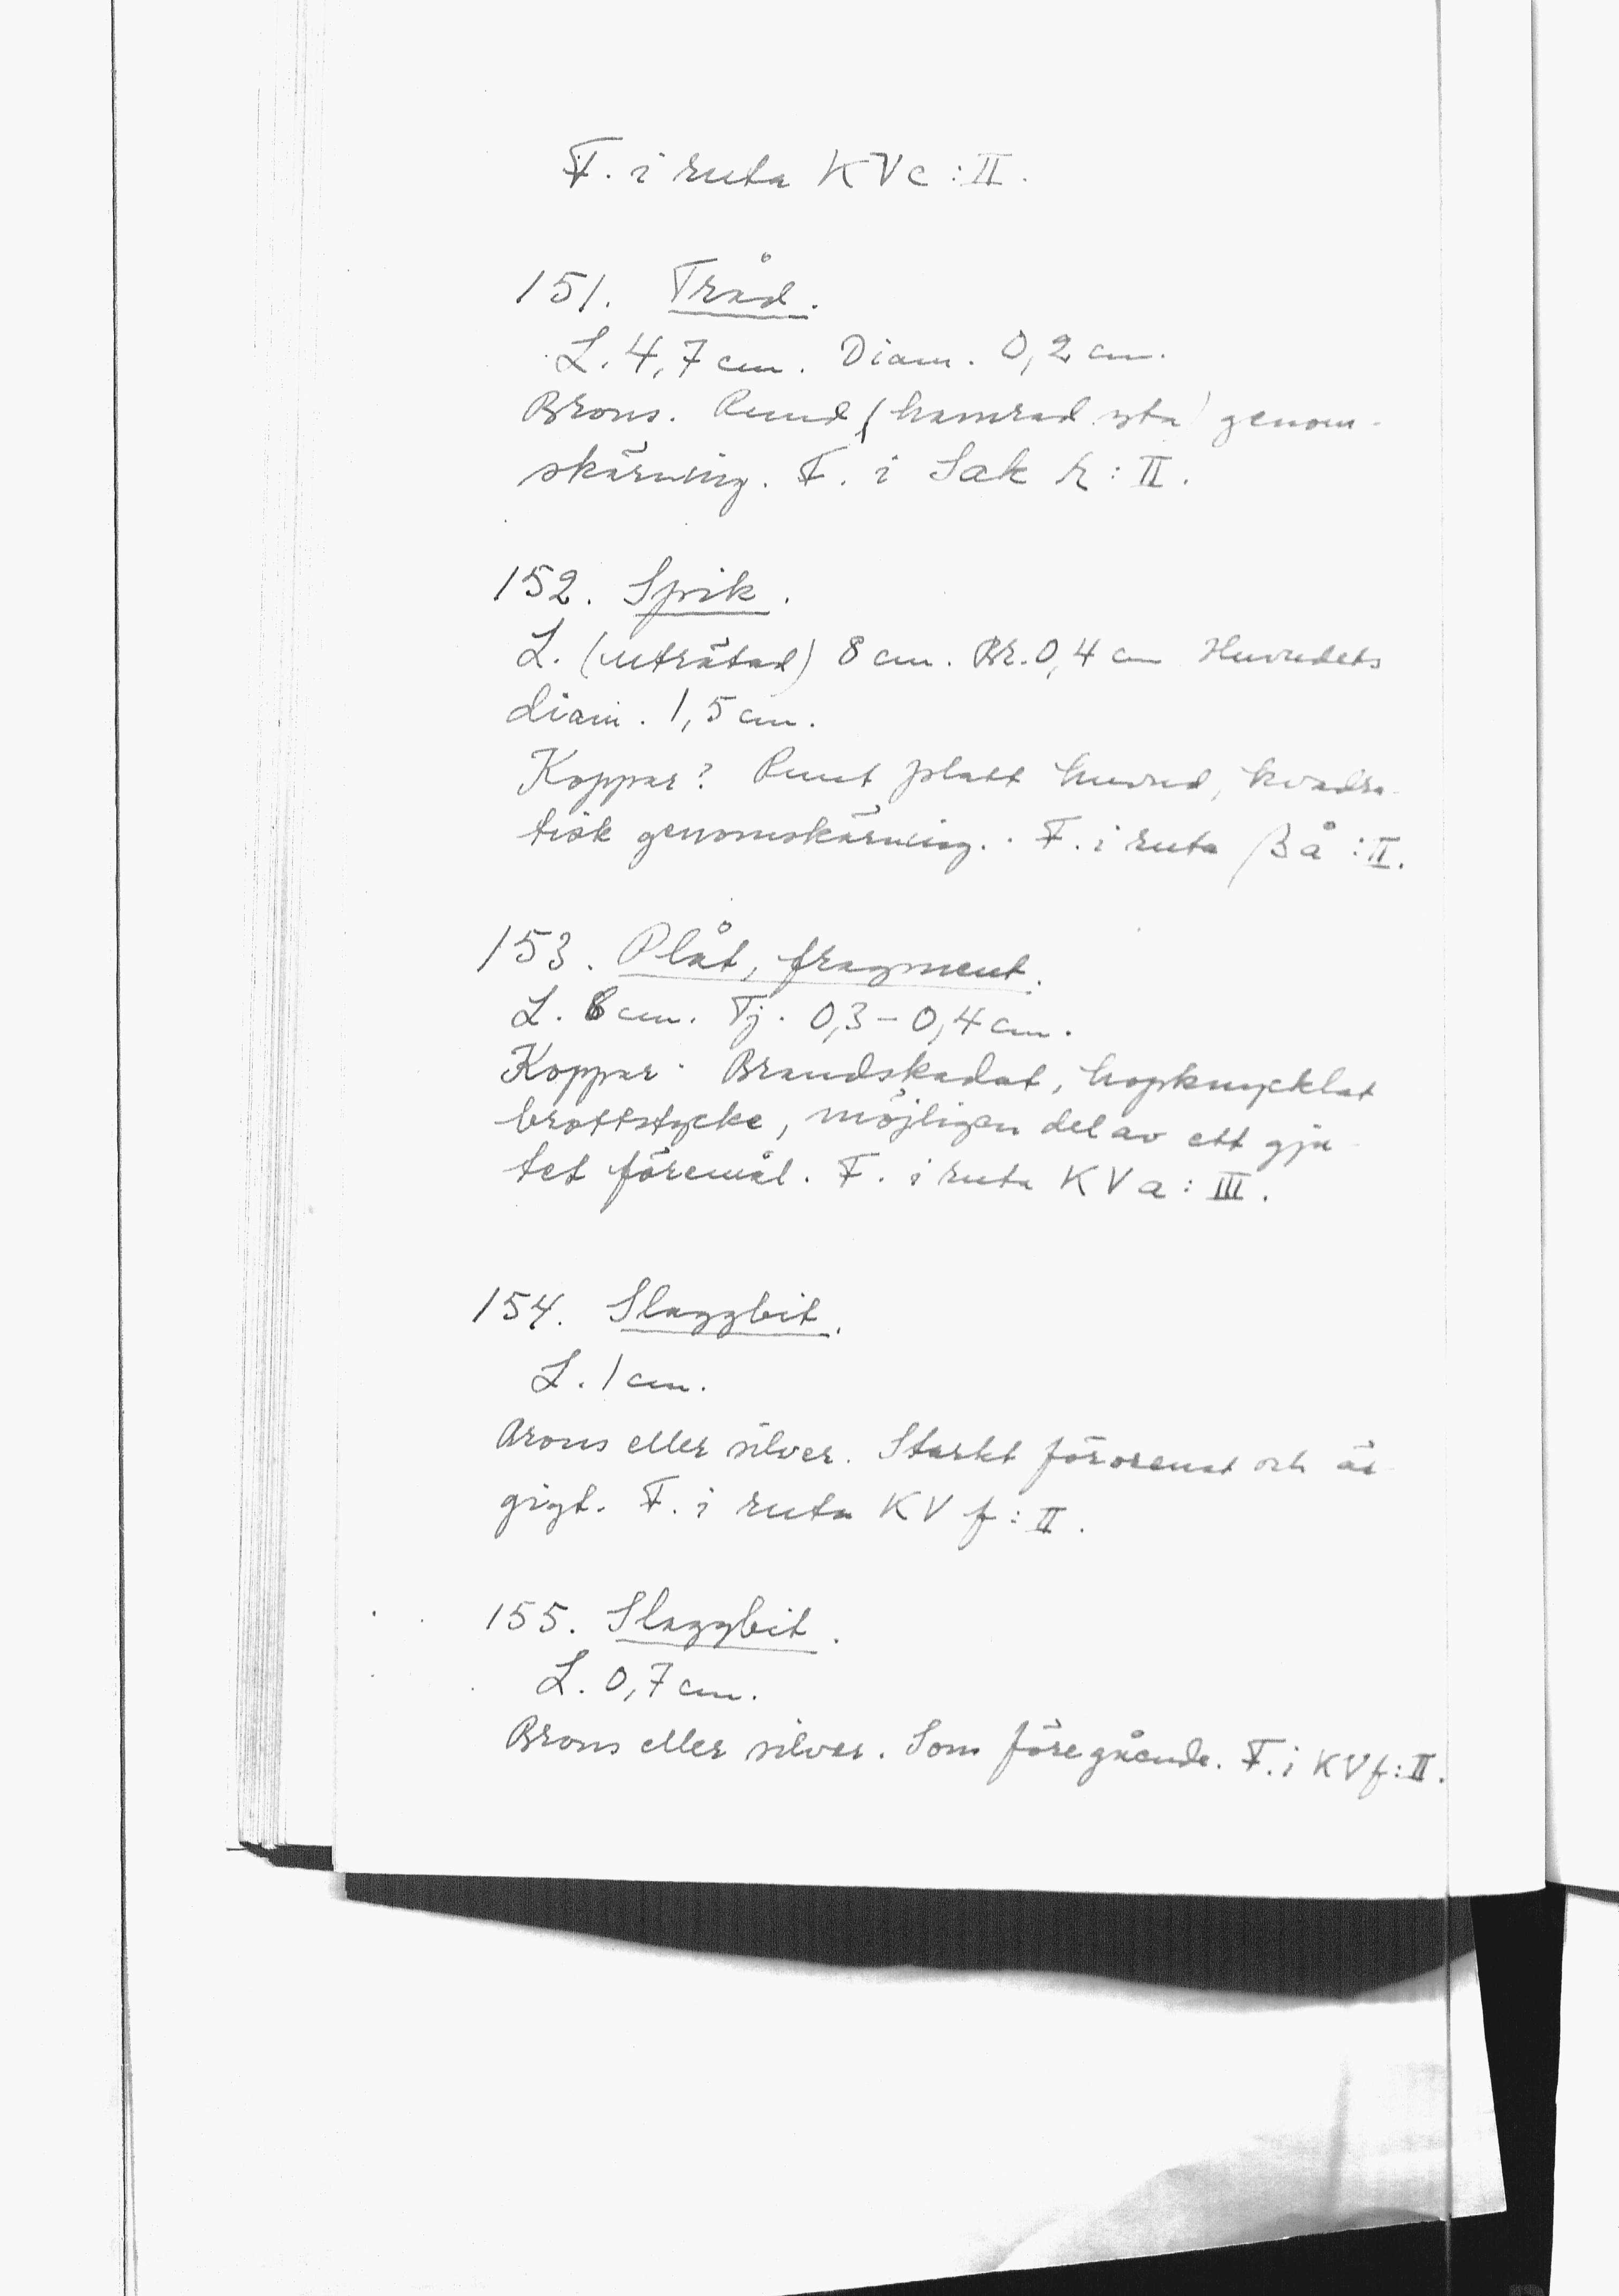 F. i ruta KVc:II.
151. Tråd.
L. 4,7 cm. Diam. 0,2 cm.
Brons. Rund (hamrad yta) genom-
skärning. F. i Sak r:II.
152. Spik.
L. (uträtad) 8 cm. Br. 0,4 cm Huvudets
diam. 1,5 cm.
Koppar? Runt platt huvud, kvadra-
tisk genomskärning. F. i ruta β å:II.
153. Plåt, fragment.
L. 8 cm. Tj. 0,3-0,4 cm.
Koppar. Brandskadat, hopknycklat
brottstycke, möjligen del av ett gju-
tet föremål. F. i ruta KVa:III.
154. Slaggbit.
L. 1 cm.
Brons eller silver. Starkt förorenat och är-
gigt. F. i ruta KV f:II.
155. Slaggbit.
L. 0,7 cm.
Brons eller silver. Som föregående. F. i KVf:II.